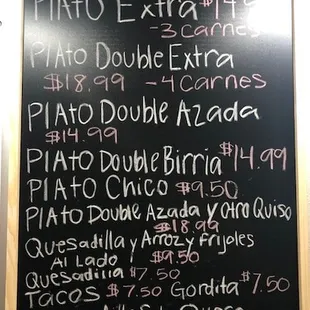 Plato Extra $14.
-3 Carnes
Plato Double Extra
$18.99 -4 Carnes
Plato Double Azada
$14.99
Plato Double Birria $14.99
Plato Chico $9.50
Plato Double Azada y Otro Quiso
$18.99
Quesadilla y Arroz y Frijoles
Al Lado $9.50
Quesadilla $7.50
Tacos $7.50 Gordita $7.50